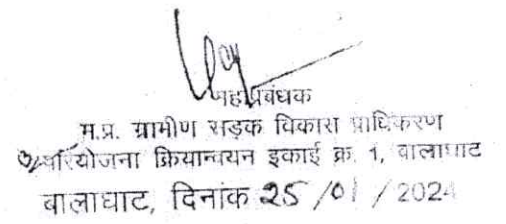 महाप्रबंधक
म.प्र. ग्रामीण सड़क विकास प्राधिकरण
परियोजना क्रियान्वयन इकाई क्र. 1, बालाघाट
बालाघाट, दिनांक 25/01/2024